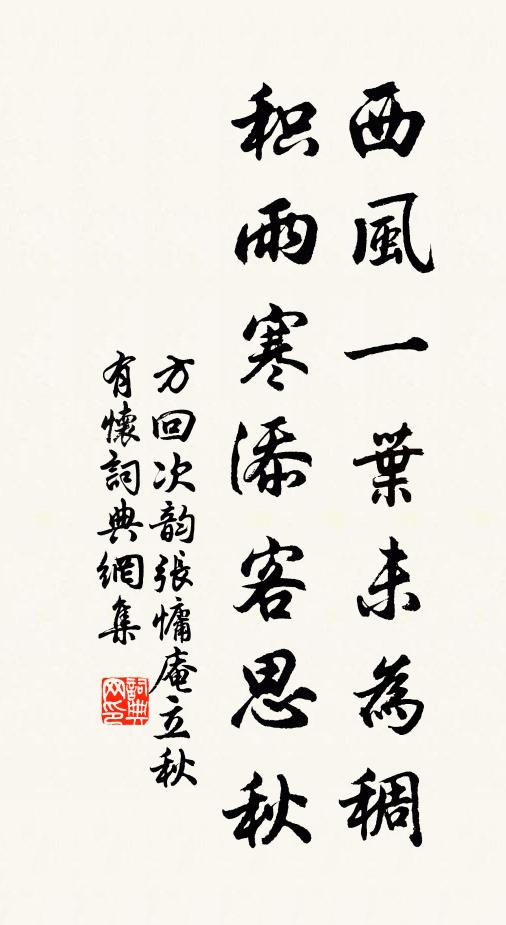 西風一葉未為稠
积雨寒添客思秋
方回次韵張慵庵立秋
有懷詞典網集
詞典网印